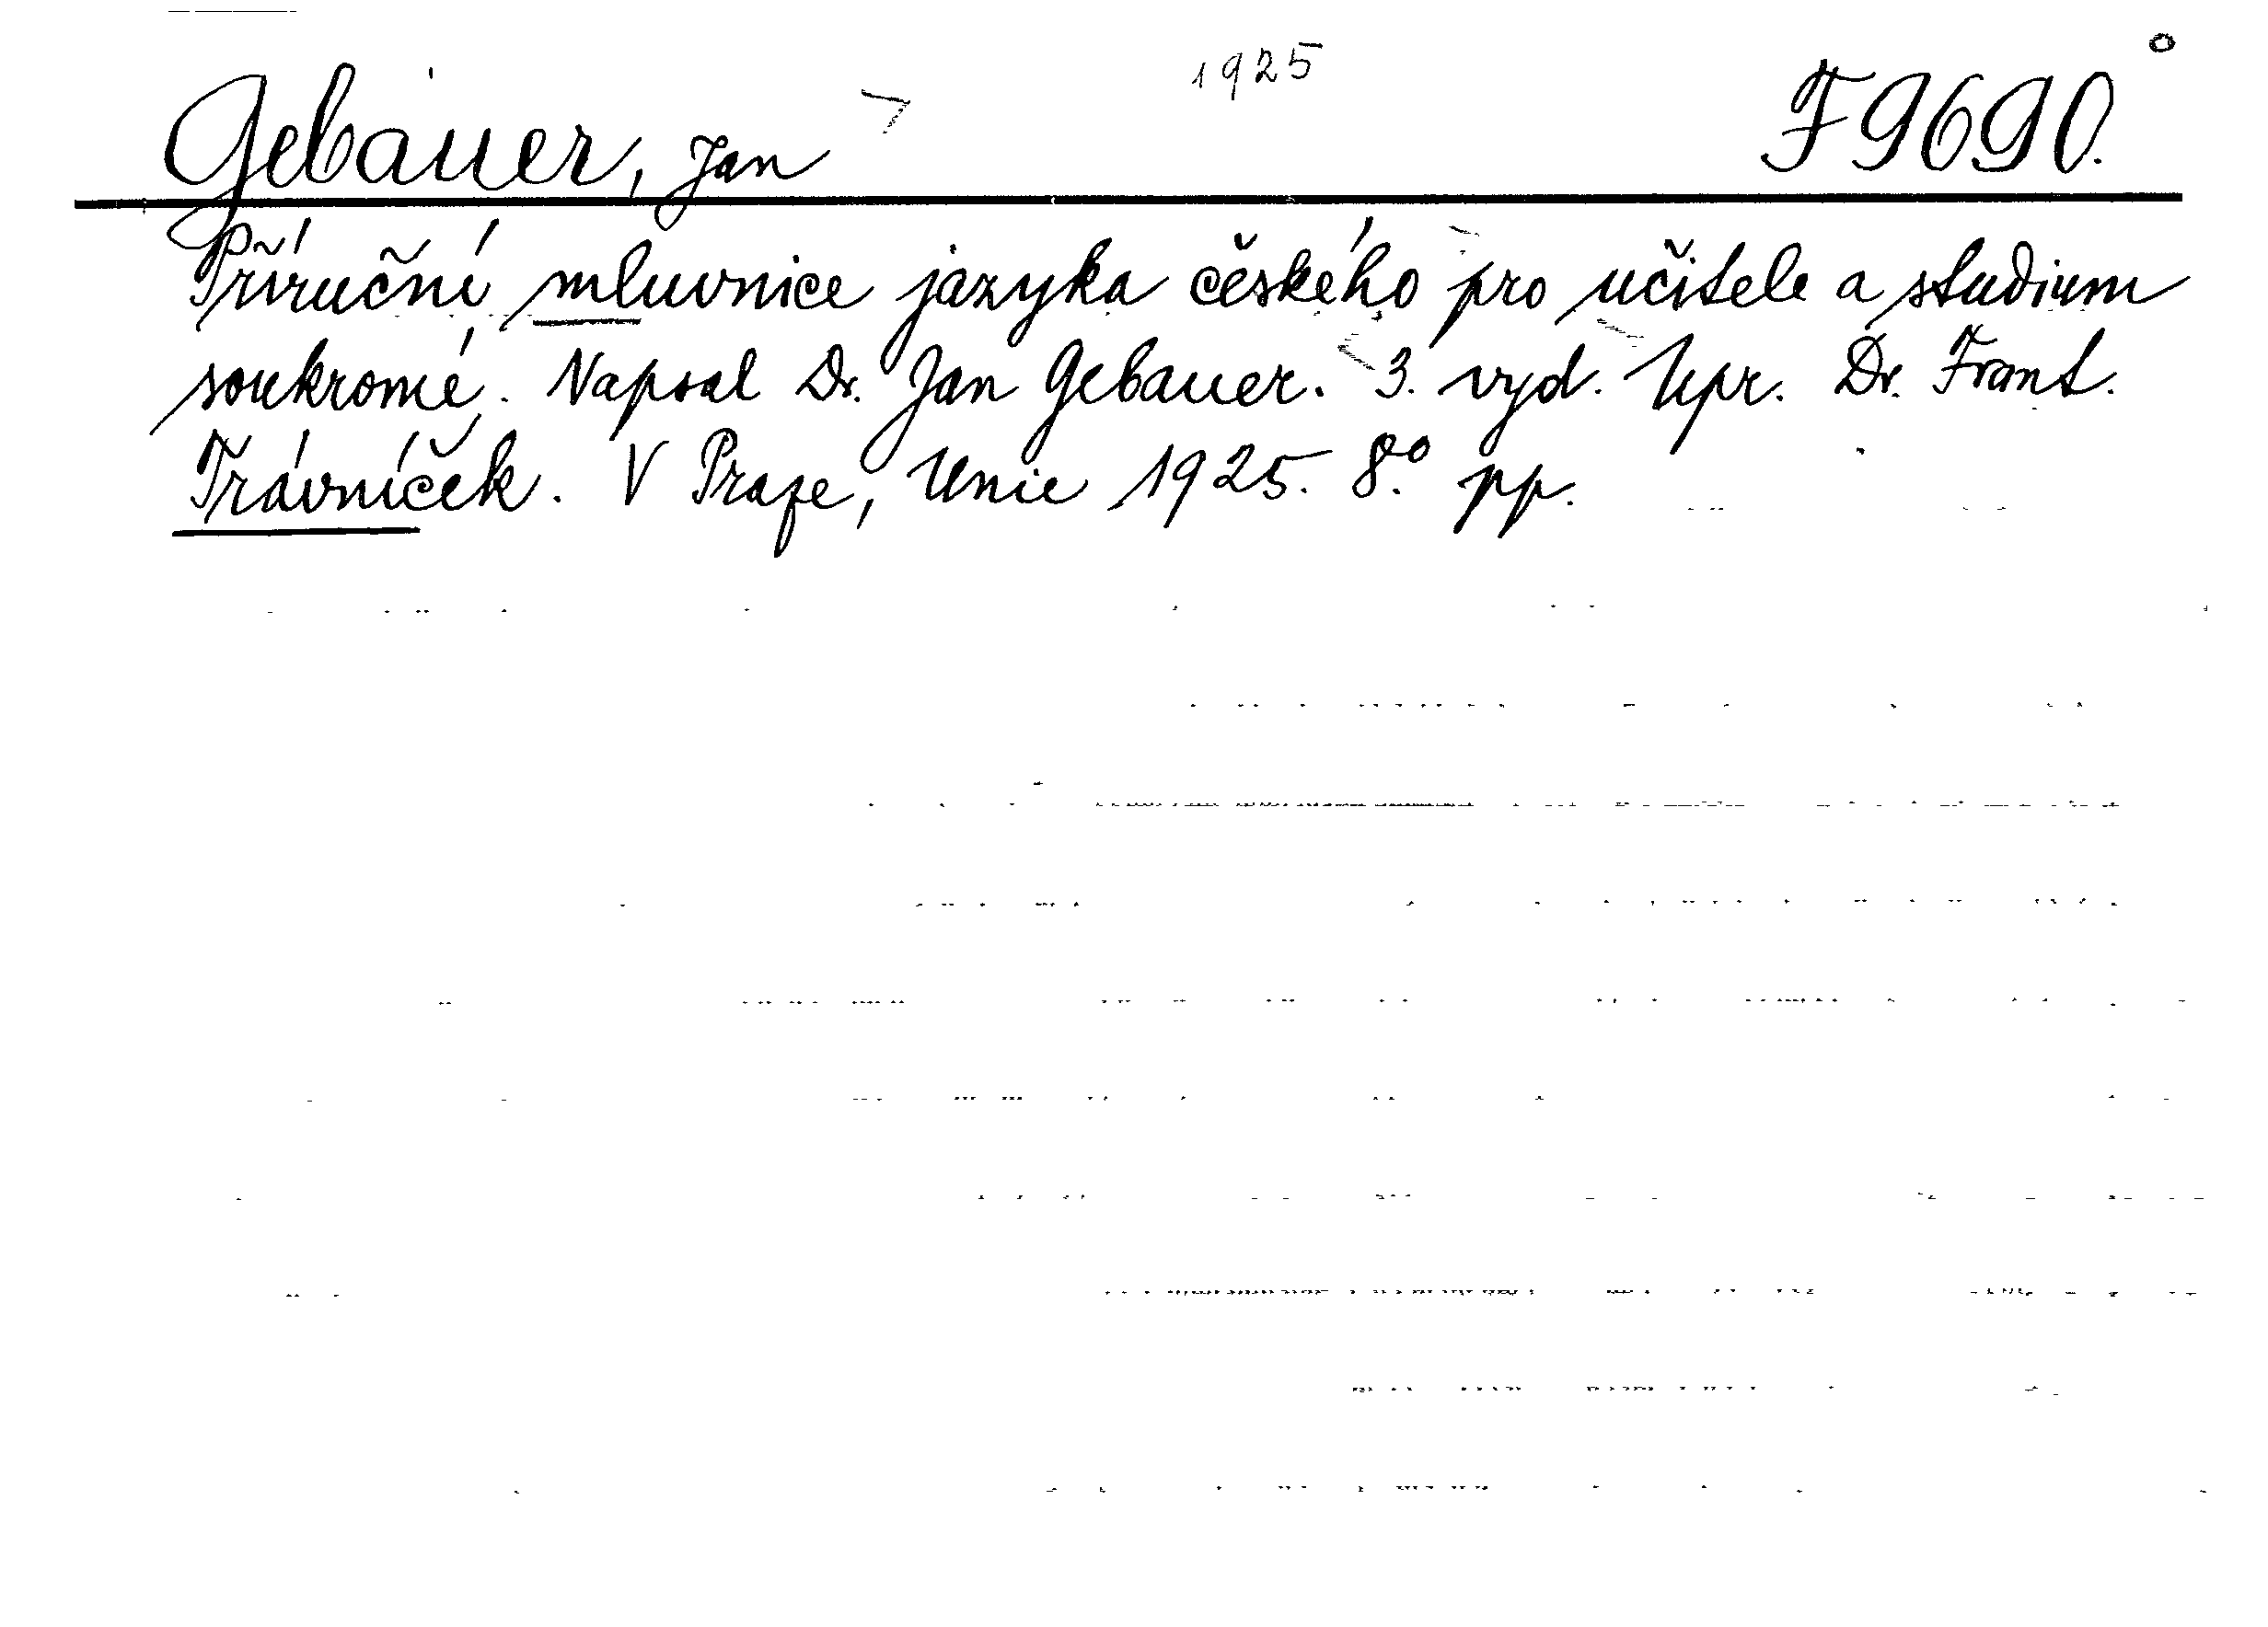 Gebauer, Jan 1925 F 9690.
Příruční mluvnice jazyka českého pro učitele a studium
soukromé. Napsal Dr. Jan Gebauer. 3. vyd. Upr. Dr. Frant.
Trávníček. V Praze, Unie 1925. 8.° pp.